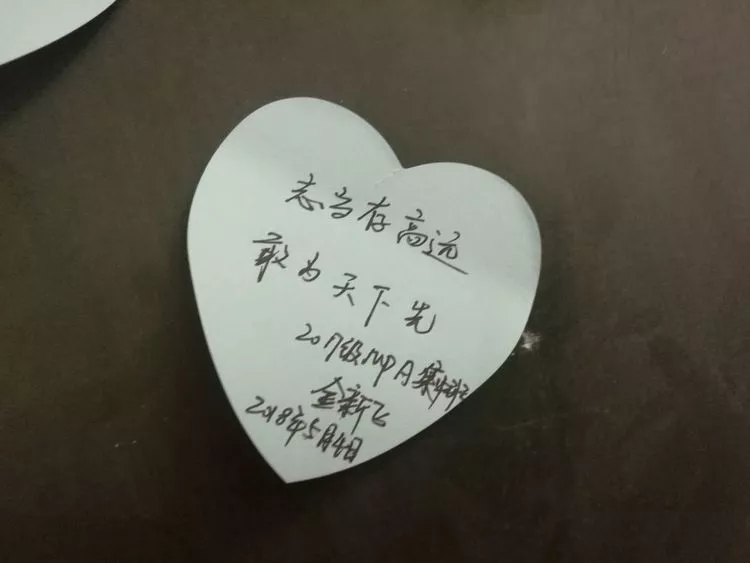 志当存高远
敢为天下先
2017级MPA集中班
金新飞
2018年5月4日